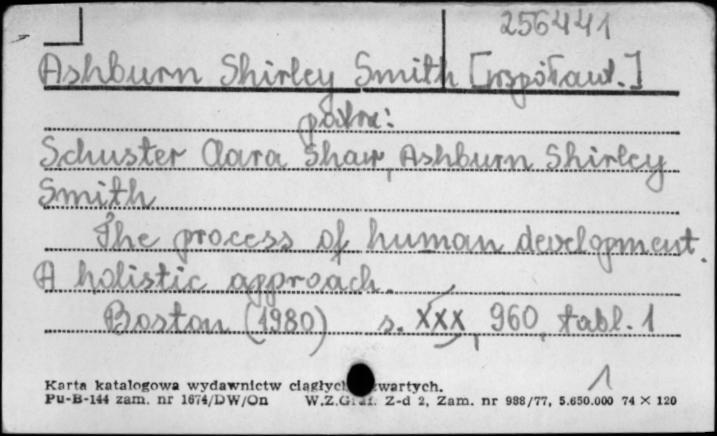 256441
Ashburn Shirley Smith [współaut.]
patrz:
Schuster Clara Shaw, Ashburn Shirley
Smith
The process of human development.
A holistic approach.
Boston (1980) s. XXX, 960, tabl. 1
Karta katalogowa wydawnictw ciągłych zwartych.
1
Pu-B-144 zam. nr 1674/DW/On W.Z.Graf. Z-d 2, Zam. nr 988/77, 5.650.000 74 × 120